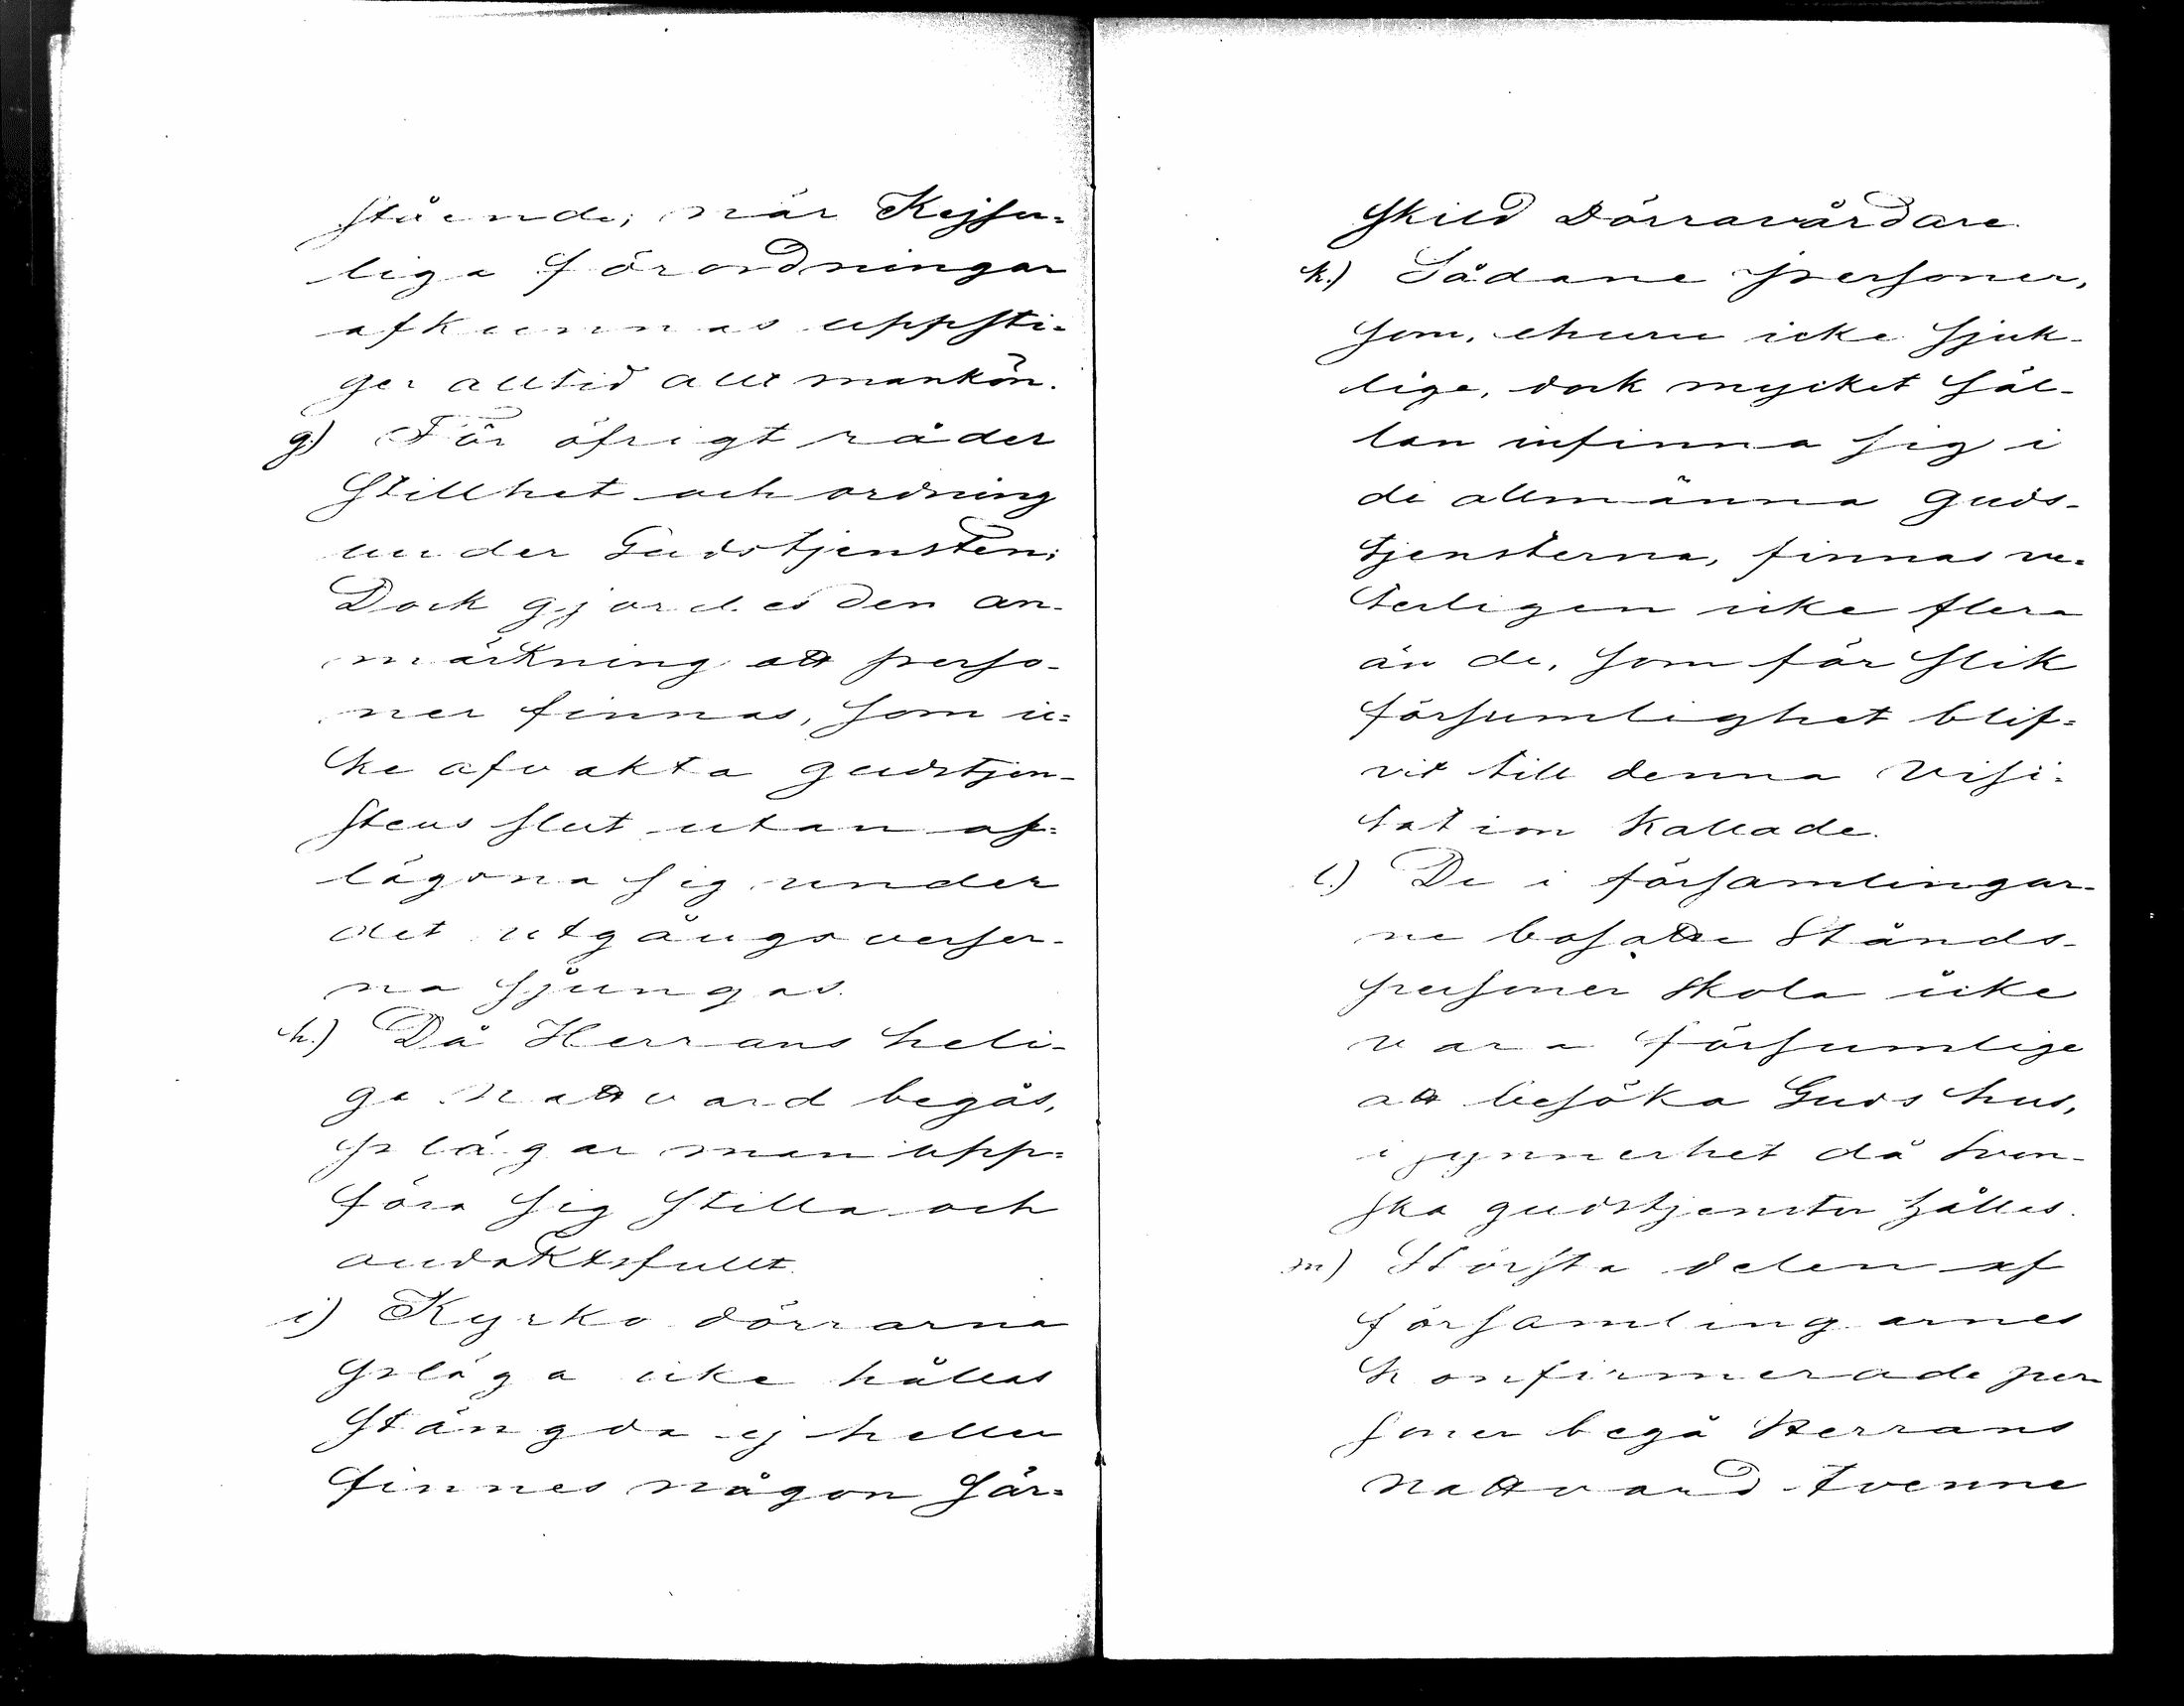 stående; när Kejser=
liga förordningar
afkunnas uppsti=
ger alltid allt mankön.
g.) För öfrigt råder
stillhet och ordning
under Gudstjensten;
Dock gjordes den an-
märkning att perso-
ner finnas, som ic=
ke afvakta gudstjen-
stens slut utan af=
lägsna sig under
det utgångsverser-
na sjungas.
h.) Då Herrans heli-
ga Nattvard begås,
plägar man upp=
föra sig stilla och
andaktsfullt.
i) Kyrko dörrarna
pläga icke hållas
stängda ej heller
finnes någon sär=
skild Dörravårdare.
k.) Sådane personer,
som, ehuru icke sjuk-
lige, dock mycket säl-
lan infinna sig i
de allmänna Guds-
tjensterna, finnas ve=
terligen icke flera
än de, som för slik
försumlighet blif=
vit till denna Visi=
tation kallade.
l.) De i församlingar-
ne bosatte Stånds-
personer skola icke
vara försumlige
att besöka Guds hus,
i synnerhet då Sven-
ska gudstjenster hålles.
m) Största delen af
församlingarnes
konfirmerade per
soner begå Herrans
Nattvard tvenne